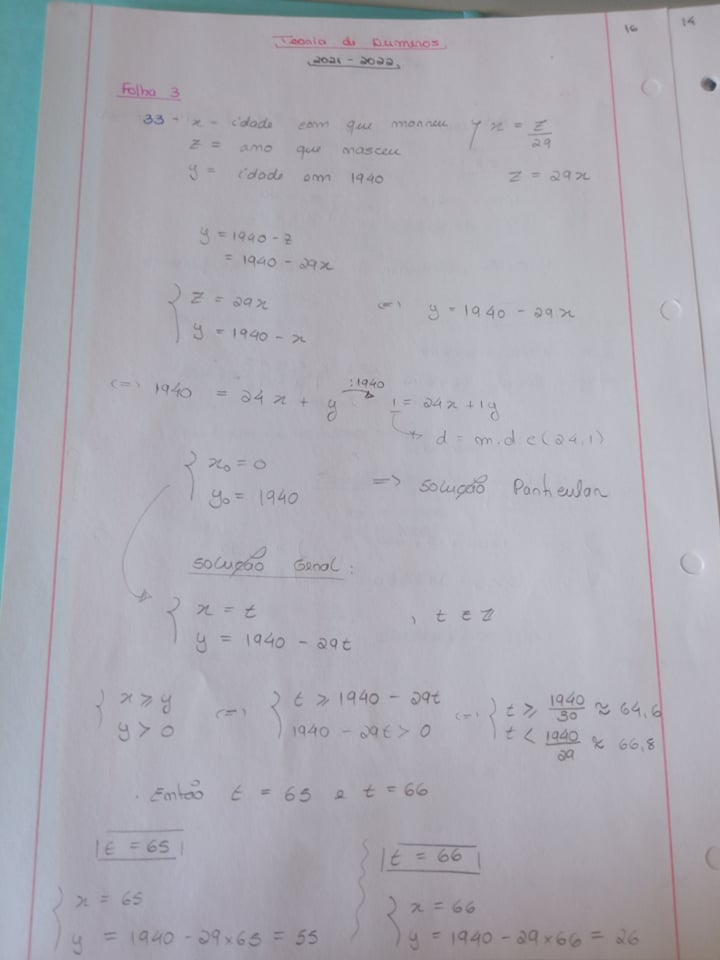 16
14
Teoria de Números
2021 - 2022
Folha 3
33 - x - idade com que morreu / x = z/29
z = ano que nasceu
y = idade em 1940 z = 29x
y = 1940 - z
= 1940 - 29x
{ z = 29x
y = 1940 - x (=) y = 1940 - 29x
(=) 1940 = 24x + y :1940 → 1 = 24x + 1y
↳ d = m.d.c(24,1)
{ x₀ = 0
y₀ = 1940 => solução Particular
solução Geral:
{ x = t
y = 1940 - 29t , t ∈ ℤ
{ x ⩾ y (=) { t ⩾ 1940 - 29t (=) { t ⩾ 1940/30 ≈ 64,6
y > 0 1940 - 29t > 0 t < 1940/29 ≈ 66,8
. Então t = 65 e t = 66
|t = 65| |t = 66|
{ x = 65 { x = 66
y = 1940 - 29×65 = 55 y = 1940 - 29×66 = 26